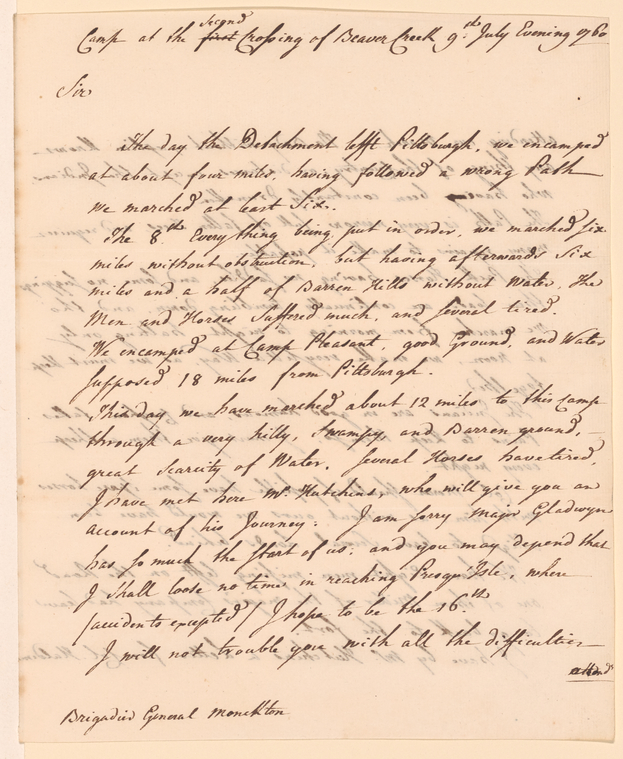 Camp at the first Second Crossing of Beaver Creek 9th July Evening 1760
Sir
The day the Detachment lefft Pittsburgh, we encamped
at about four miles, having followed a wrong Path
we marched at least Six.
The 8th Every thing being put in order, we marched six
miles without obstruction, but having afterwards Six
miles and a half of Barren Hills without Water, The
Men and Horses Suffered much, and several tired.
We encamped at Camp Pleasant, good Ground, and Water
supposed 18 miles from Pittsburgh.
This day we have marched about 12 miles to this Camp
through a very hilly, Swampy, and Barren ground,
great Scarcity of Water. Several Horses have tired,
I have met here Mr. Hutchins, who will give you an
account of his Journey: I am sorry Major Gladwyn
has so much the Start of us; and you may depend that
I Shall loose no time in reaching Presqu'Isle, where
/accidents excepted/ I hope to be the 16th
I will not trouble you with all the difficulties
Brigadier General Monckton